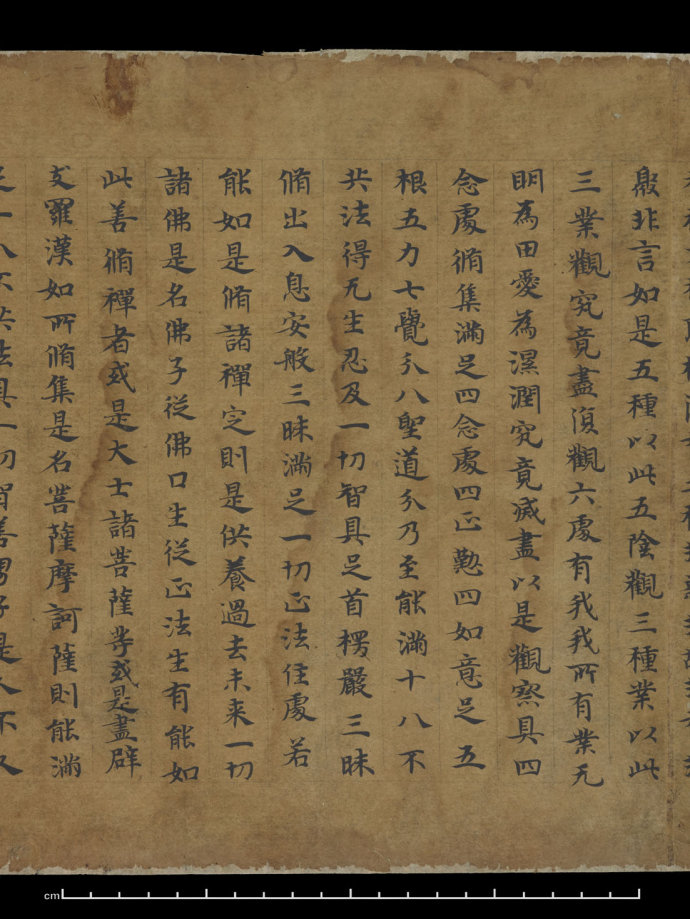 嚴非言如是五種以此五陰觀三種業以此
三業觀究竟盡湏觀六處有我我所有業无
明為田愛為濕潤究竟滅盡以是觀察具四
念處脩集滿足四念處四正懃四如意足五
根五力七覺分八聖道分乃至能滿十八不
共法得无生忍及一切智具足首楞嚴三昧
脩出入息安般三昧滿足一切正法住處若
能如是脩諸禪定則是供養過去未来一切
諸佛是名佛子從佛口生從正法生有能如
此善脩禪者或是大士諸菩薩等或是盡辟
支羅漢如所脩集是名菩薩摩訶薩則能滿
足十八不共法具一切智善男子是人不久